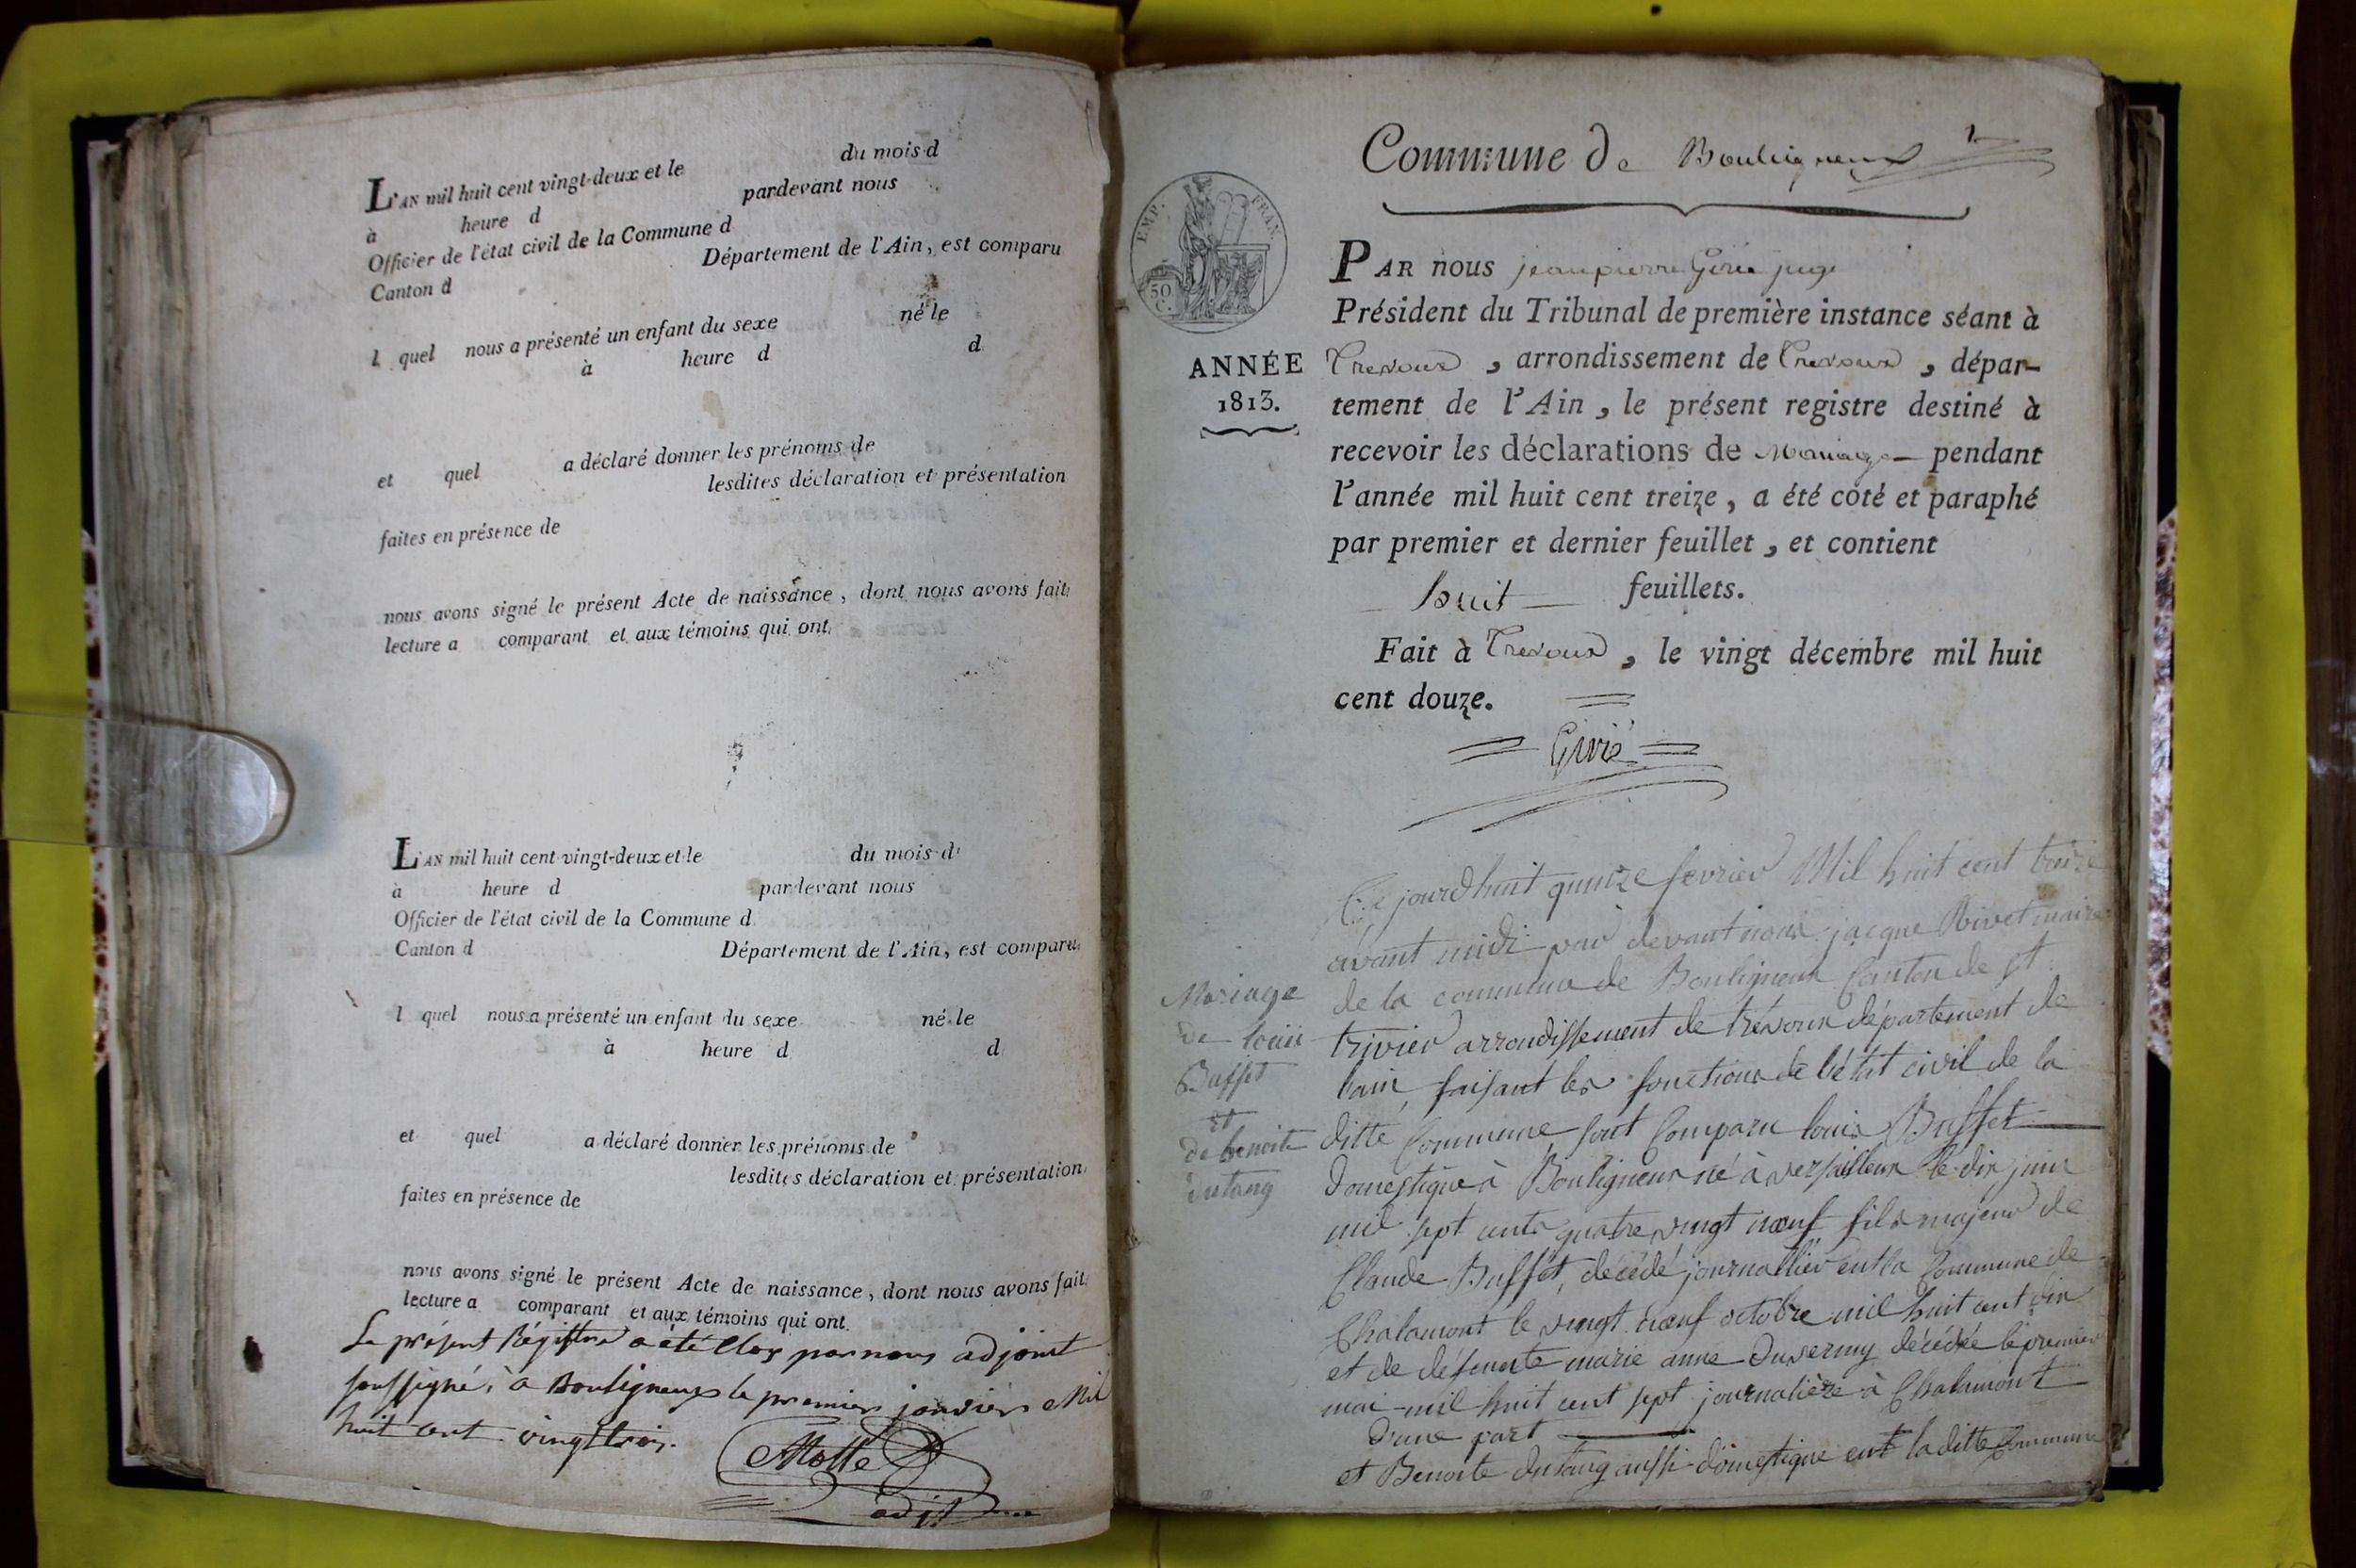 L'AN mil huit cent vingt-deux et le du mois d
à heure d pardevant nous
Officier de l'état civil de la Commune d
Canton d Département de l'Ain, est comparu
l quel nous a présenté un enfant du sexe né le
à heure d d
et quel a déclaré donner les prénoms de
lesdites déclaration et présentation
faites en présence de
nous avons signé le présent Acte de naissance, dont nous avons fait
lecture a comparant et aux témoins qui ont
L'AN mil huit cent vingt-deux et le du mois d
à heure d pardevant nous
Officier de l'état civil de la Commune d
Canton d Département de l'Ain, est comparu
l quel nous a présenté un enfant du sexe né le
à heure d d
et quel a déclaré donner les prénoms de
lesdites déclaration et présentation
faites en présence de
nous avons signé le présent Acte de naissance, dont nous avons fait
lecture a comparant et aux témoins qui ont
Le présent Régistre a été Clos par nous adjoint
soussigné, à Bouligneux le premier janvier Mil
huit cent vingt trois.
adjt
Commune de Bouligneux 1
EMP. FRAN.
50 C.
ANNÉE
1813.
PAR nous jean pierre Girié juge
Président du Tribunal de première instance séant à
Trevoux, arrondissement de Trevoux, dépar-
tement de l'Ain, le présent registre destiné à
recevoir les déclarations de Mariage pendant
l'année mil huit cent treize, a été coté et paraphé
par premier et dernier feuillet, et contient
huit feuillets.
Fait à Trevoux, le vingt décembre mil huit
cent douze.
Girié
Mariage
de louis
Buffet
et
de benoite
dutang
Ce jourdhuit quinze fevrier Mil huit cent treize
avant midi par devant nous jacque Rivet maire
de la commune de Bouligneux Canton de st
trivier arrondissement de trévoux département de
lain, faisant les fonctions de l'état civil de la
ditte Commune sont Comparu louis Buffet
domestique à Bouligneux né à versailleux le dix juin
mil sept cents quatre vingt nœuf fils majeur de
Claude Buffet, décédé journallier ent la Commune de
Chalamont le vingt nœuf octobre mil huit cent dix
et de défunte marie anne duverny décédée le premier
mai mil huit cent sept journalière à Chalamont
d'une part
et Benoite dutang aussi domestique ent la ditte Commune